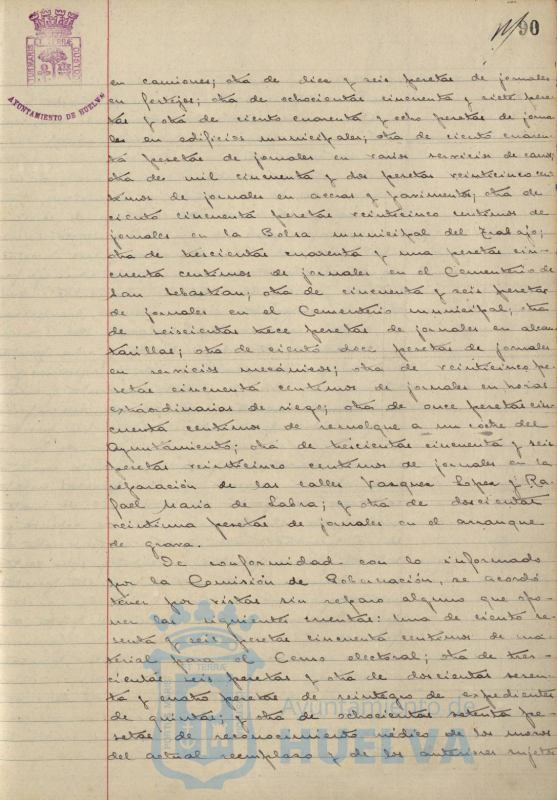 90
PORTUS MARIS ET TERRAE CUSTODIA
AYUNTAMIENTO DE HUELVA
en camiones; otra de diez y seis pesetas de jornales
en festejos; otra de ochocientas cincuenta y siete pese-
tas y otra de ciento cuarenta y ocho pesetas de jorna-
les en edificios municipales; otra de ciento cuaren-
ta pesetas de jornales en varios servicios de
otra de mil cincuenta y dos pesetas veinticinco cén-
timos de jornales en aceras y pavimentos; otra de
ciento cincuenta pesetas veinticinco centimos de
jornales en la Bolsa municipal del Trabajo;
otra de trescientas cuarenta y una pesetas cin-
cuenta centimos de jornales en el Cementerio de
San Sebastian; otra de cincuenta y seis pesetas
de jornales en el Cementerio municipal; otra
de seiscientas trece pesetas de jornales en alcan-
tarillas; otra de ciento doce pesetas de jornales
en servicios mecánicos; otra de veinticinco pe-
setas cincuenta centimos de jornales en horas
extraordinarias de riego; otra de once pesetas cin-
cuenta centimos de remolque a un coche del
Ayuntamiento; otra de trescientas cincuenta y seis
pesetas veinticinco centimos de jornales en la
reparación de las calles Vazquez Lopez y Ra-
fael Maria de Labra; y otra de doscientas
veintiuna pesetas de jornales en el arranque
de grava.
De conformidad con lo informado
por la Comisión de Gobernación, se acordó
tener por vistas sin reparo alguno que opo-
ner las siguientes cuentas: una de ciento se-
senta y seis pesetas cincuenta centimos de ma-
terial para el Censo electoral; otra de tres-
cientas seis pesetas y otra de doscientas
y cuatro pesetas de reintegro de expedientes
de quintas; y otra de ochocientas setenta pe-
setas de reconocimiento médico de los mozos
del actual reemplazo y de los anteriores sujetos
Ayuntamiento de
HUELVA